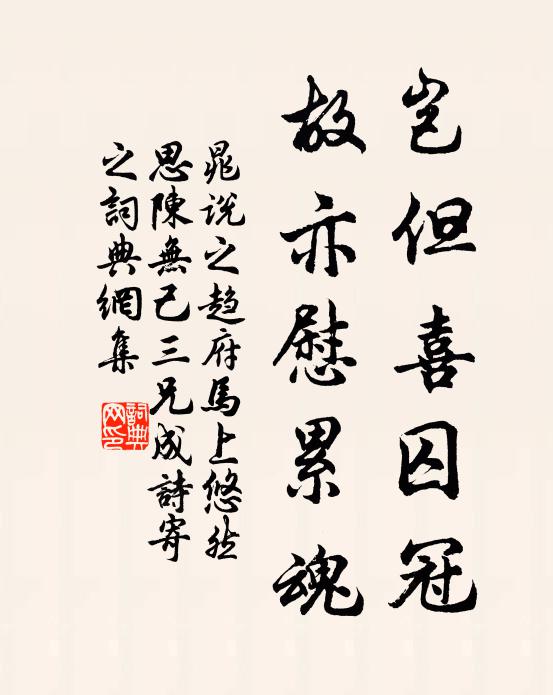 豈但喜囚冠
故亦慰累魂
晁说之趋府馬上悠然
思陳無己三兄成詩寄
之詞典網集
詞典
网印